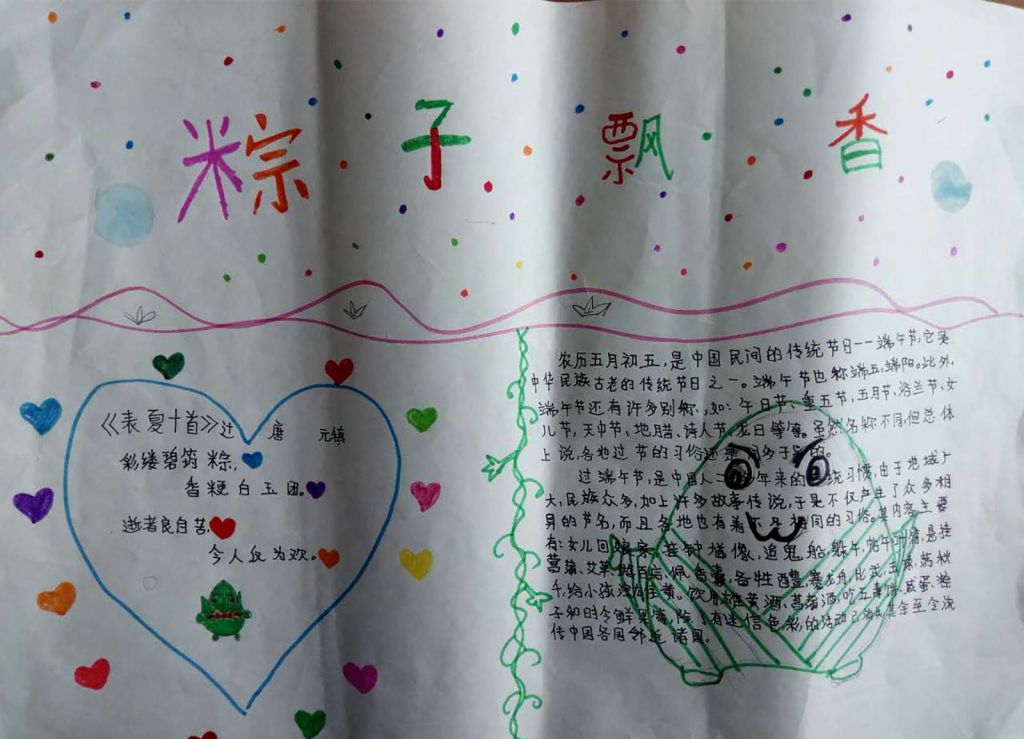 粽子飘香
《表夏十首》 唐 元镇
彩缕碧筠粽,
香粳白玉团。
逝者良自苦,
今人反为欢。
农历五月初五,是中国民间的传统节日--端午节,它是
中华民族古老的传统节日之一。端午节也称端五,端阳。此外,
端午节还有许多别称,如:午日节、重五节,五月节,浴兰节、女
儿节,天中节、地腊、诗人节、龙日等等。虽然名称不同,但总体
上说,各地过节的习俗还是同多于异的。
过端午节,是中国人二千多年来的传统习惯,由于地域广
大,民族众多,加上许多故事传说,于是不仅产生了众多相
异的节名,而且各地也有着不尽相同的习俗。其内容主要
有:女儿回娘家,挂钟馗像,追鬼船,躲午,帖午叶符,悬挂
菖蒲、艾草,佩香囊,备牲醴,赛龙舟,比武,击球,荡秋
千,给小孩涂雄黄。饮用雄黄酒、菖蒲酒,吃五毒饼、咸蛋、粽
子和时令鲜果等,除了有迷信色彩的活动已消失其余至今流
传中国各国邻近诸国。